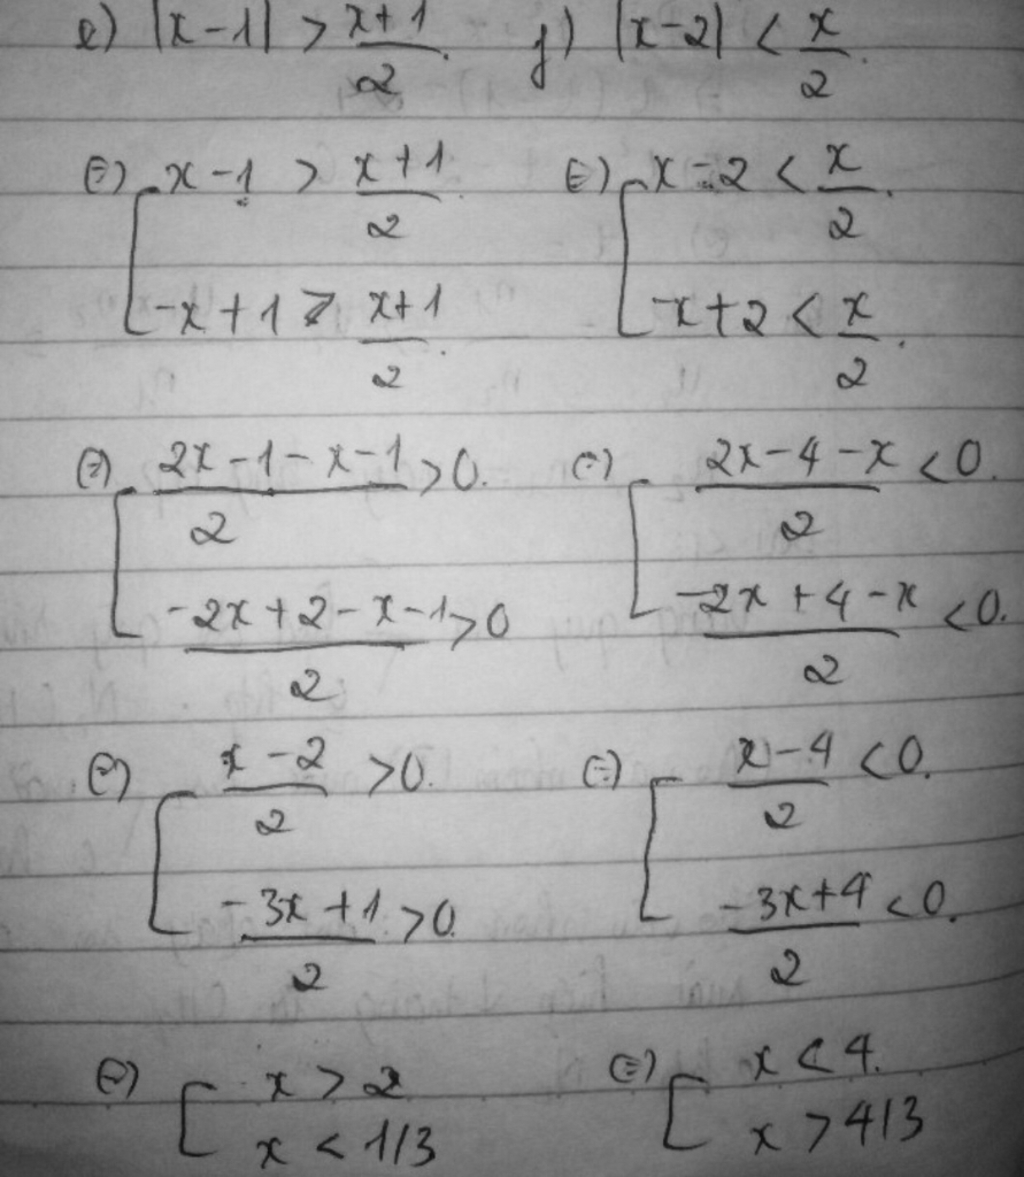 e) |x-1| > (x+1)/2. f) |x-2| < x/2.
⇔ [ x-1 > (x+1)/2. ⇔ [ x-2 < x/2.
-x+1 > (x+1)/2. -x+2 < x/2.
⇔ [ (2x-1-x-1)/2 >0. ⇔ [ (2x-4-x)/2 <0.
(-2x+2-x-1)/2 >0 (-2x+4-x)/2 <0.
⇔ [ (x-2)/2 >0. ⇔ [ (x-4)/2 <0.
(-3x+1)/2 >0. (-3x+4)/2 <0.
⇔ [ x > 2 ⇔ [ x < 4.
x < 1/3 x > 4/3